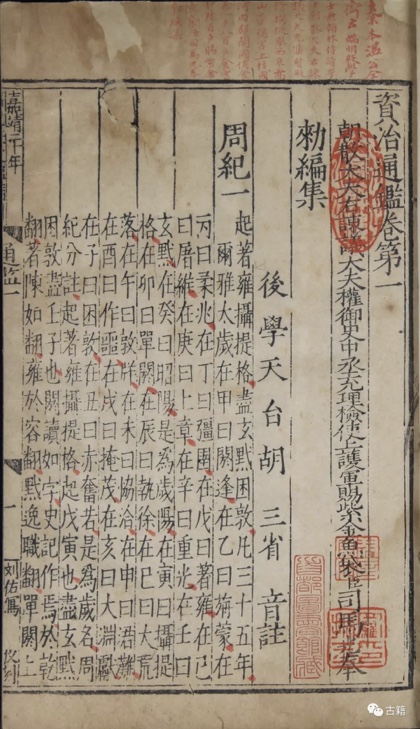 資治通鑑卷第一
朝散大夫右諫議大夫權御史中丞充理檢使上護軍賜紫金魚袋臣司馬奉
勑編集
後學天台胡三省音註
周紀一
起著雍攝提格盡玄黓困敦凡三十五年
爾雅太歲在甲曰閼逢在乙曰旃蒙在
丙曰柔兆在丁曰彊圉在戊曰著雍在己
曰屠維在庚曰上章在辛曰重光在壬曰
玄黓在癸曰昭陽是爲歲陽在寅曰攝提
格在卯曰單閼在辰曰執徐在巳曰大荒
落在午曰敦牂在未曰協洽在申曰涒灘
在酉曰作噩在戌曰掩茂在亥曰大淵獻
在子曰困敦在丑曰赤奮若是爲歲名周
紀分註起著雍攝提格起戊寅也盡玄黓
困敦盡壬子也閼讀如字史記作焉於乾
翻著陳如翻雍於容翻黓逸職翻單閼上
嘉靖二十年
通監一
一
刘佑寫
古籍